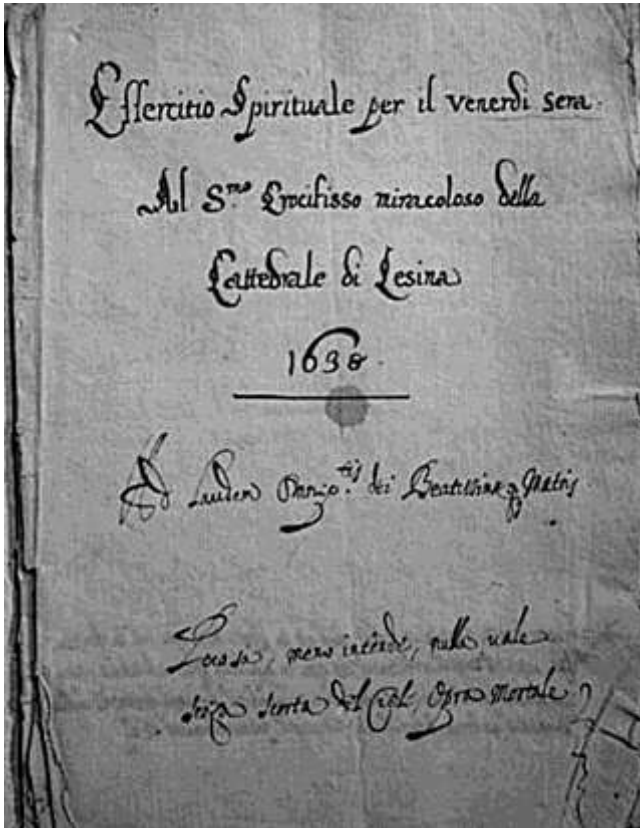 Essercitio Spirituale per il venerdi sera.
Al S.mo Crocifisso miracoloso della
Cattedrale di Lesina
1638.
Ad Laudem Omnip.tis dei Beatissimæq Matris.
meno intende, nulla uale
del Ciel, Opra Mortale